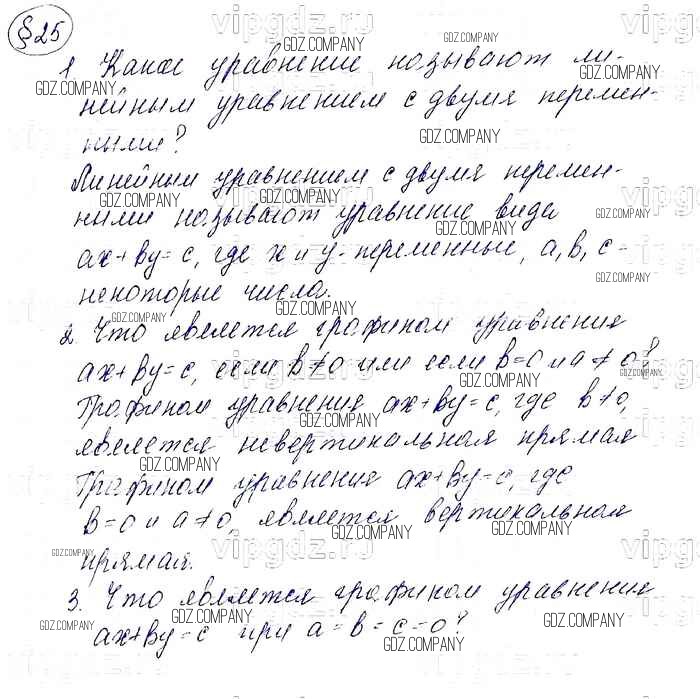 §25
1. Какое уравнение называют ли-
нейным уравнением с двумя перемен-
ными?
Линейным уравнением с двумя перемен-
ными называют уравнение вида
ax+by=c, где x и y - переменные, a, b, c -
некоторые числа.
2. Что является графиком уравнения
ax+by=c, если b≠0 или если b=0 и a≠0?
Графиком уравнения ax+by=c, где b≠0,
является невертикальная прямая
Графиком уравнения ax+by=c, где
b=0 и a≠0, является вертикальная
прямая.
3. Что является графиком уравнения
ax+by=c при a=b=c=0?
GDZ.COMPANY
vipgdz.ru